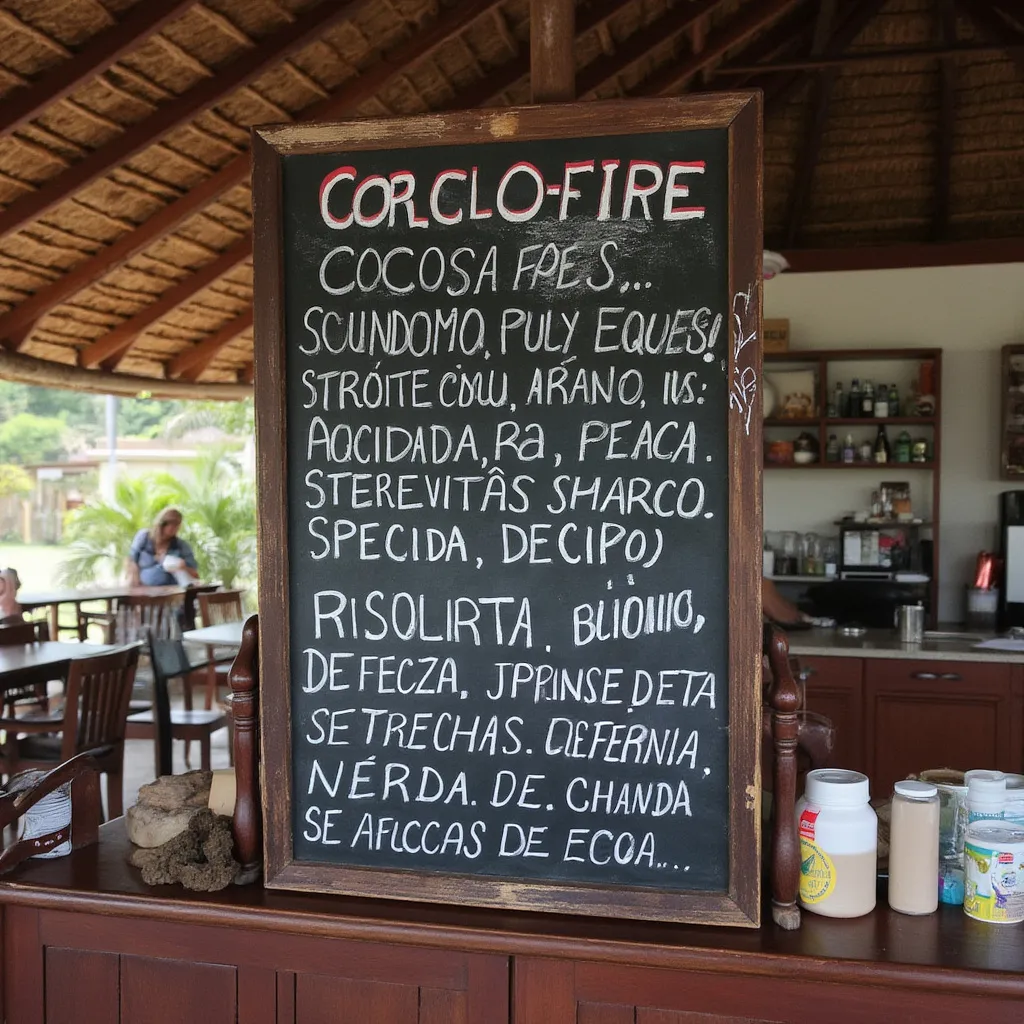 CORCLO-FIRE
COCOSA FPES...
SCUNDOMO, PULY EQUES!
STRÓITE COLU, ARÁNO, IUS:
AQCIDADA, Ra, PEACA.
STEREVITÂS SHARCO.
SPECIDA, DECIPO)
RISOLIRTA.
DEFECZA. JPRINSE, DETA
SETRECHAS. DEFERNIA,
NÉRDA. DE. CHANDA
SE AFICCAS DE ECOA....